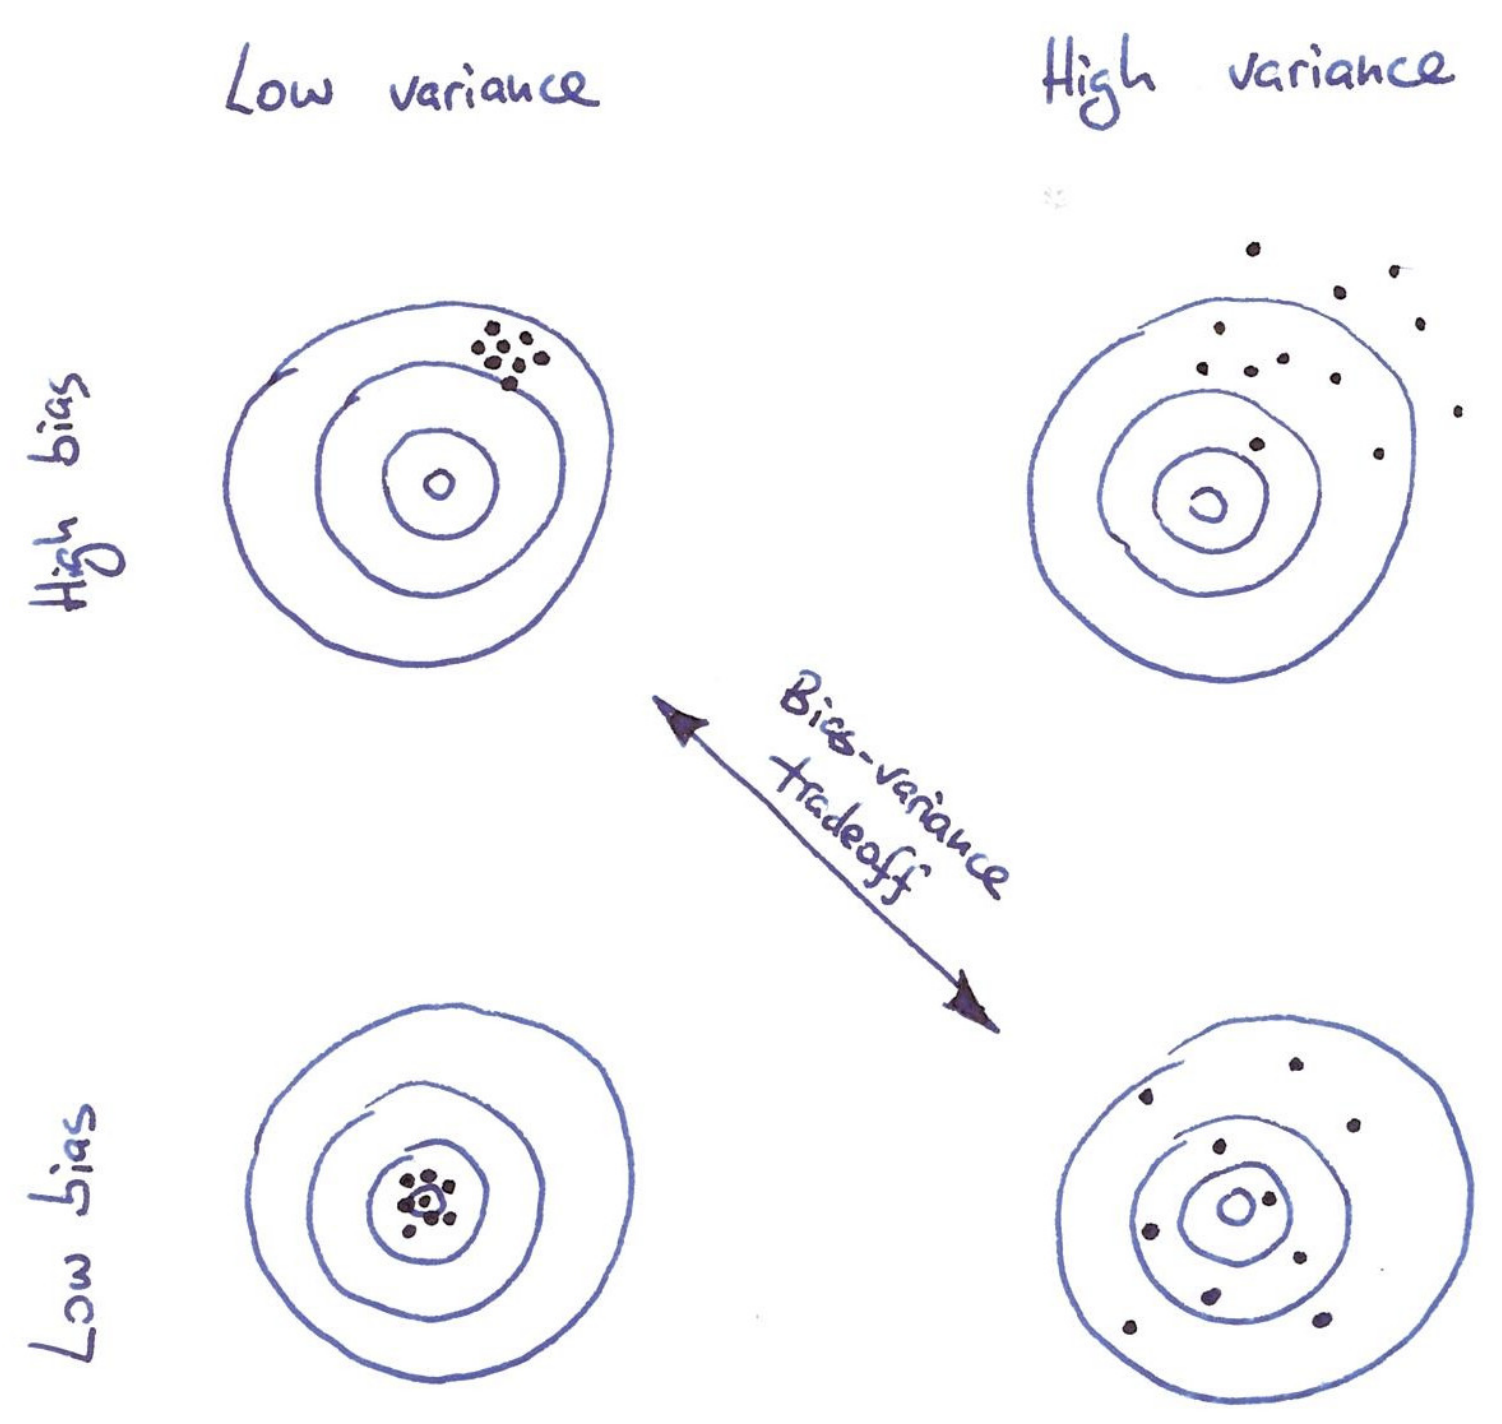 Low variance
High variance
High bias
Bias-variance
tradeoff
Low bias